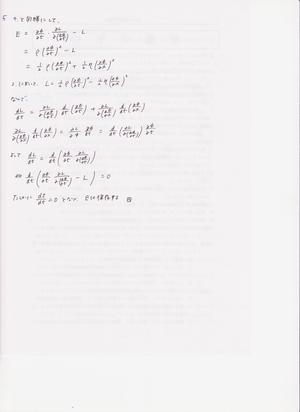 5 4. と同様にして、
E = ∂φ/∂t ∂L/∂(∂φ/∂t) - L
= ρ(∂φ/∂t)² - L
= ½ρ(∂φ/∂t)² + ½η(∂φ/∂x)²
2. において、L = ½ρ(∂φ/∂t)² - ½η(∂φ/∂x)²
なので、
dL/dt = ∂L/∂(∂φ/∂t) d/dt(∂φ/∂t) + ∂L/∂(∂φ/∂x) d/dt(∂φ/∂x)
∂L/∂(∂φ/∂x) d/dt(∂φ/∂x) = ∂L/∂φ ∂φ/∂t = d/dt(∂L/∂(∂φ/∂t)) ∂φ/∂t
よって dL/dt = d/dt(∂φ/∂t ∂L/∂(∂φ/∂t))
⇔ d/dt(∂φ/∂t ∂L/∂(∂φ/∂t) - L) = 0
たしかに dE/dt = 0 となり、Eは保存する